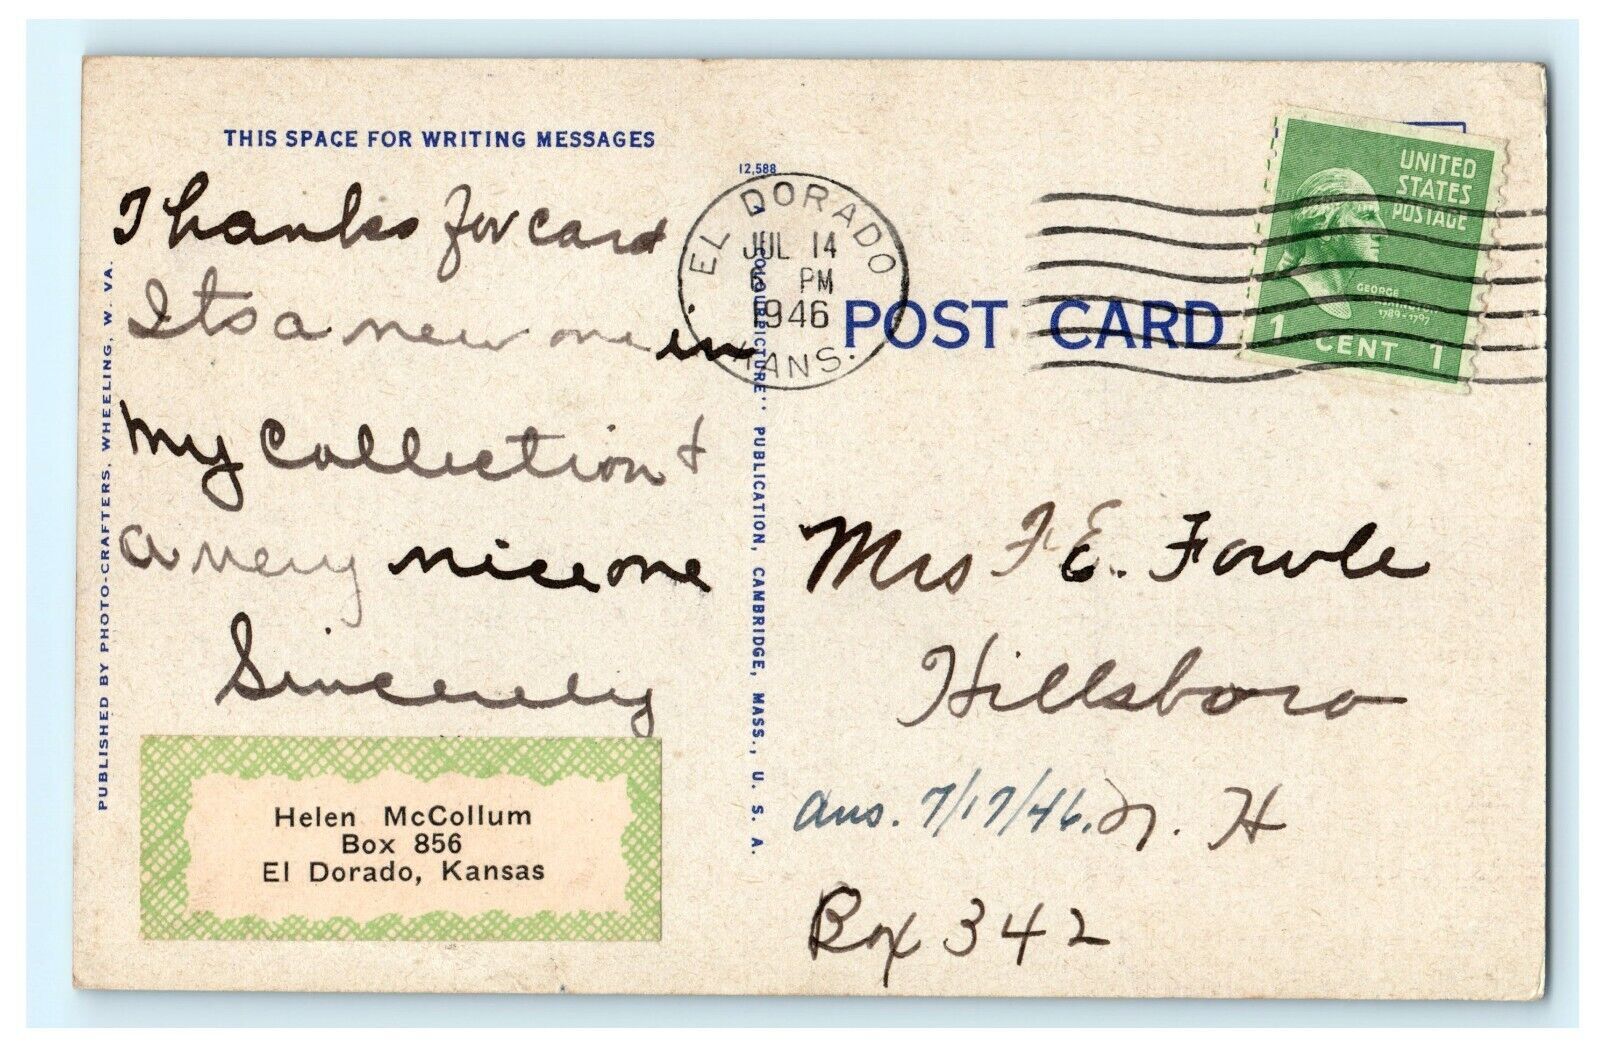 THIS SPACE FOR WRITING MESSAGES
Thanks for card
Its a new one in
My Collection &
a very nice one
Sincerely
Helen McCollum
Box 856
El Dorado, Kansas
PUBLISHED BY PHOTO-CRAFTERS, WHEELING, W. VA.
12,588
"COLOURPICTURE" PUBLICATION, CAMBRIDGE, MASS., U. S. A.
EL DORADO
JUL 14
PM
1946
KANS.
POST CARD
UNITED
STATES
POSTAGE
GEORGE
1789-1797
1 CENT 1
Mrs F. E. Fowle
Hillsboro
ans. 7/17/46. N. H
Box 342